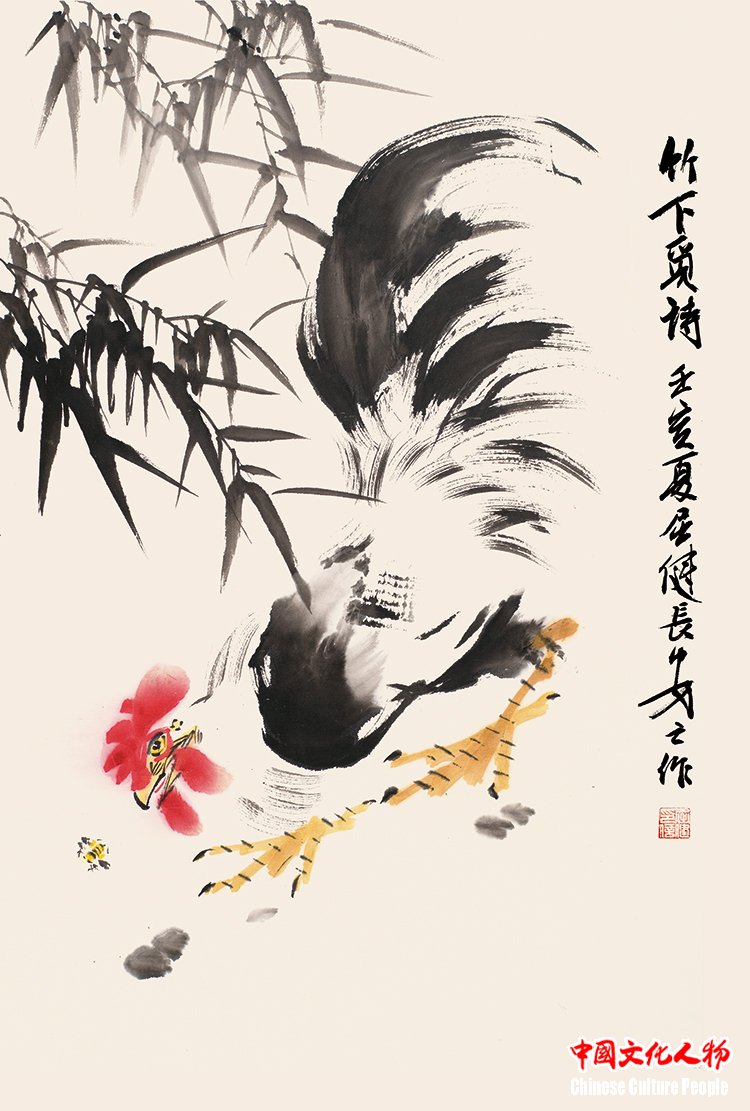 竹下覓詩 壬寅夏屈健長安之作
中國文化人物
Chinese Culture People